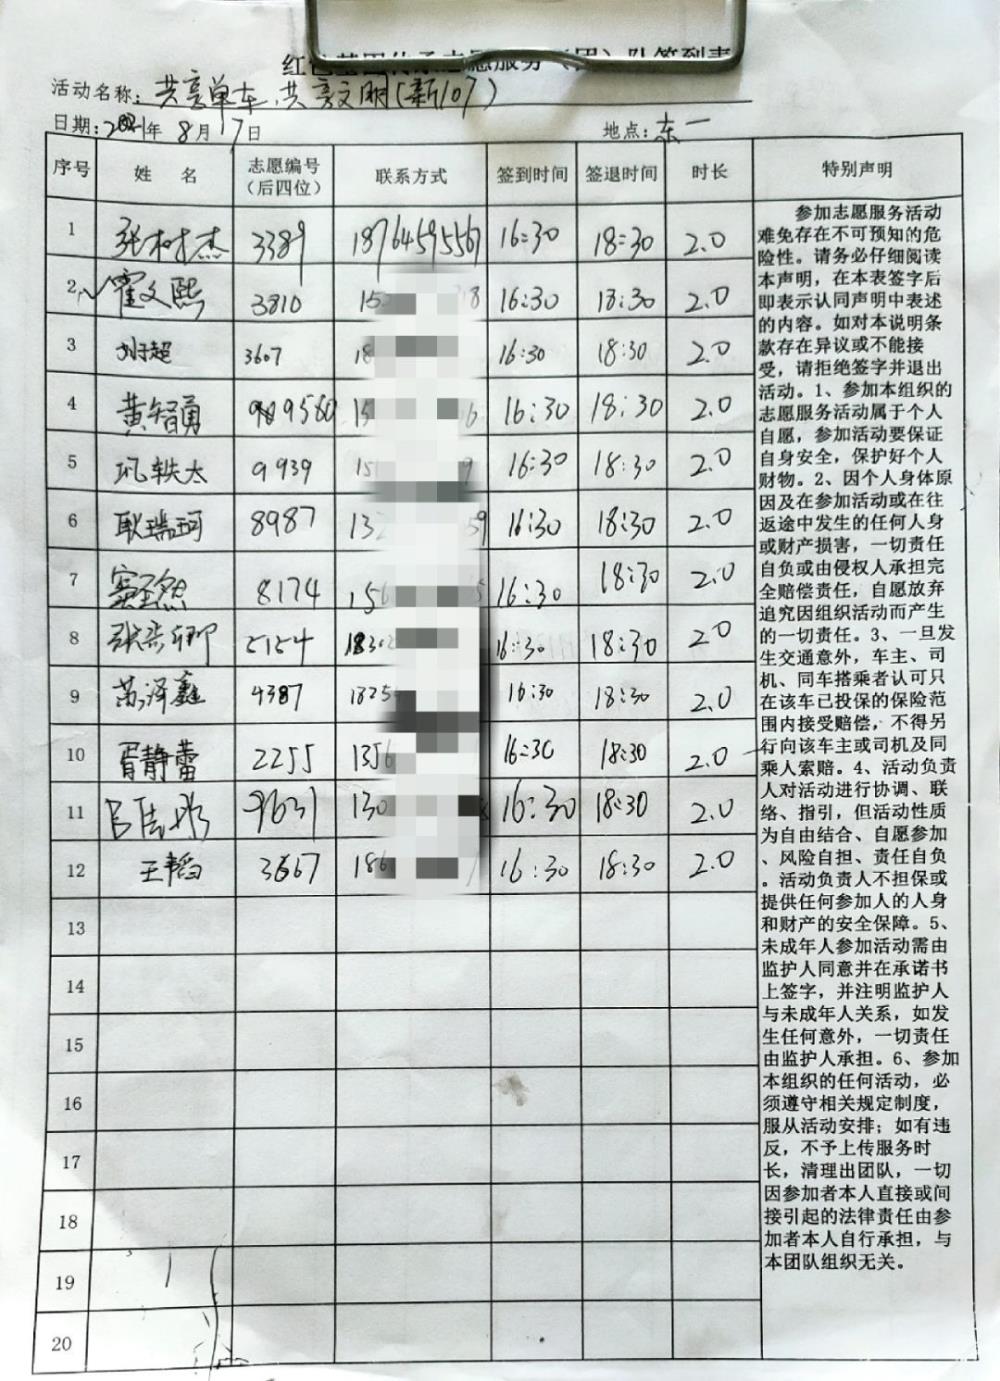 活动名称：共享单车、共享文明（新107）
日期：2021年 8月17日 地点：东一
序号 姓 名 志愿编号（后四位） 联系方式 签到时间 签退时间 时长 特别声明
1 张树杰 3389 18764595567 16:30 18:30 2.0
2 霍文熙 3810 16:30 18:30 2.0
3 刘超 3607 16:30 18:30 2.0
4 黄智勇 9560 16:30 18:30 2.0
5 巩轶太 9939 16:30 18:30 2.0
6 耿瑞珂 8987 16:30 18:30 2.0
7 8174 16:30 18:30 2.0
8 5154 16:30 18:30 2.0
9 苏泽鑫 4387 16:30 18:30 2.0
10 胥静蕾 2255 16:30 18:30 2.0
11 9631 16:30 18:30 2.0
12 王韬 3667 16:30 18:30 2.0
13
14
15
16
17
18
19
20
参加志愿服务活动
难免存在不可预知的危
险性。请务必仔细阅读
本声明，在本表签字后
即表示认同声明中表述
的内容。如对本说明条
款存在异议或不能接
受，请拒绝签字并退出
活动。1、参加本组织的
志愿服务活动属于个人
自愿，参加活动要保证
自身安全，保护好个人
财物。2、因个人身体原
因及在参加活动或在往
返途中发生的任何人身
或财产损害，一切责任
自负或由侵权人承担完
全赔偿责任，自愿放弃
追究因组织活动而产生
的一切责任。3、一旦发
生交通意外，车主、司
机、同车搭乘者认可只
在该车已投保的保险范
围内接受赔偿，不得另
行向该车主或司机及同
乘人索赔。4、活动负责
人对活动进行协调、联
络、指引，但活动性质
为自由结合、自愿参加
、风险自担、责任自负
。活动负责人不担保或
提供任何参加人的人身
和财产的安全保障。5、
未成年人参加活动需由
监护人同意并在承诺书
上签字，并注明监护人
与未成年人关系，如发
生任何意外，一切责任
由监护人承担。6、参加
本组织的任何活动，必
须遵守相关规定制度，
服从活动安排；如有违
反，不予上传服务时
长，清理出团队，一切
因参加者本人直接或间
接引起的法律责任由参
加者本人自行承担，与
本团队组织无关。